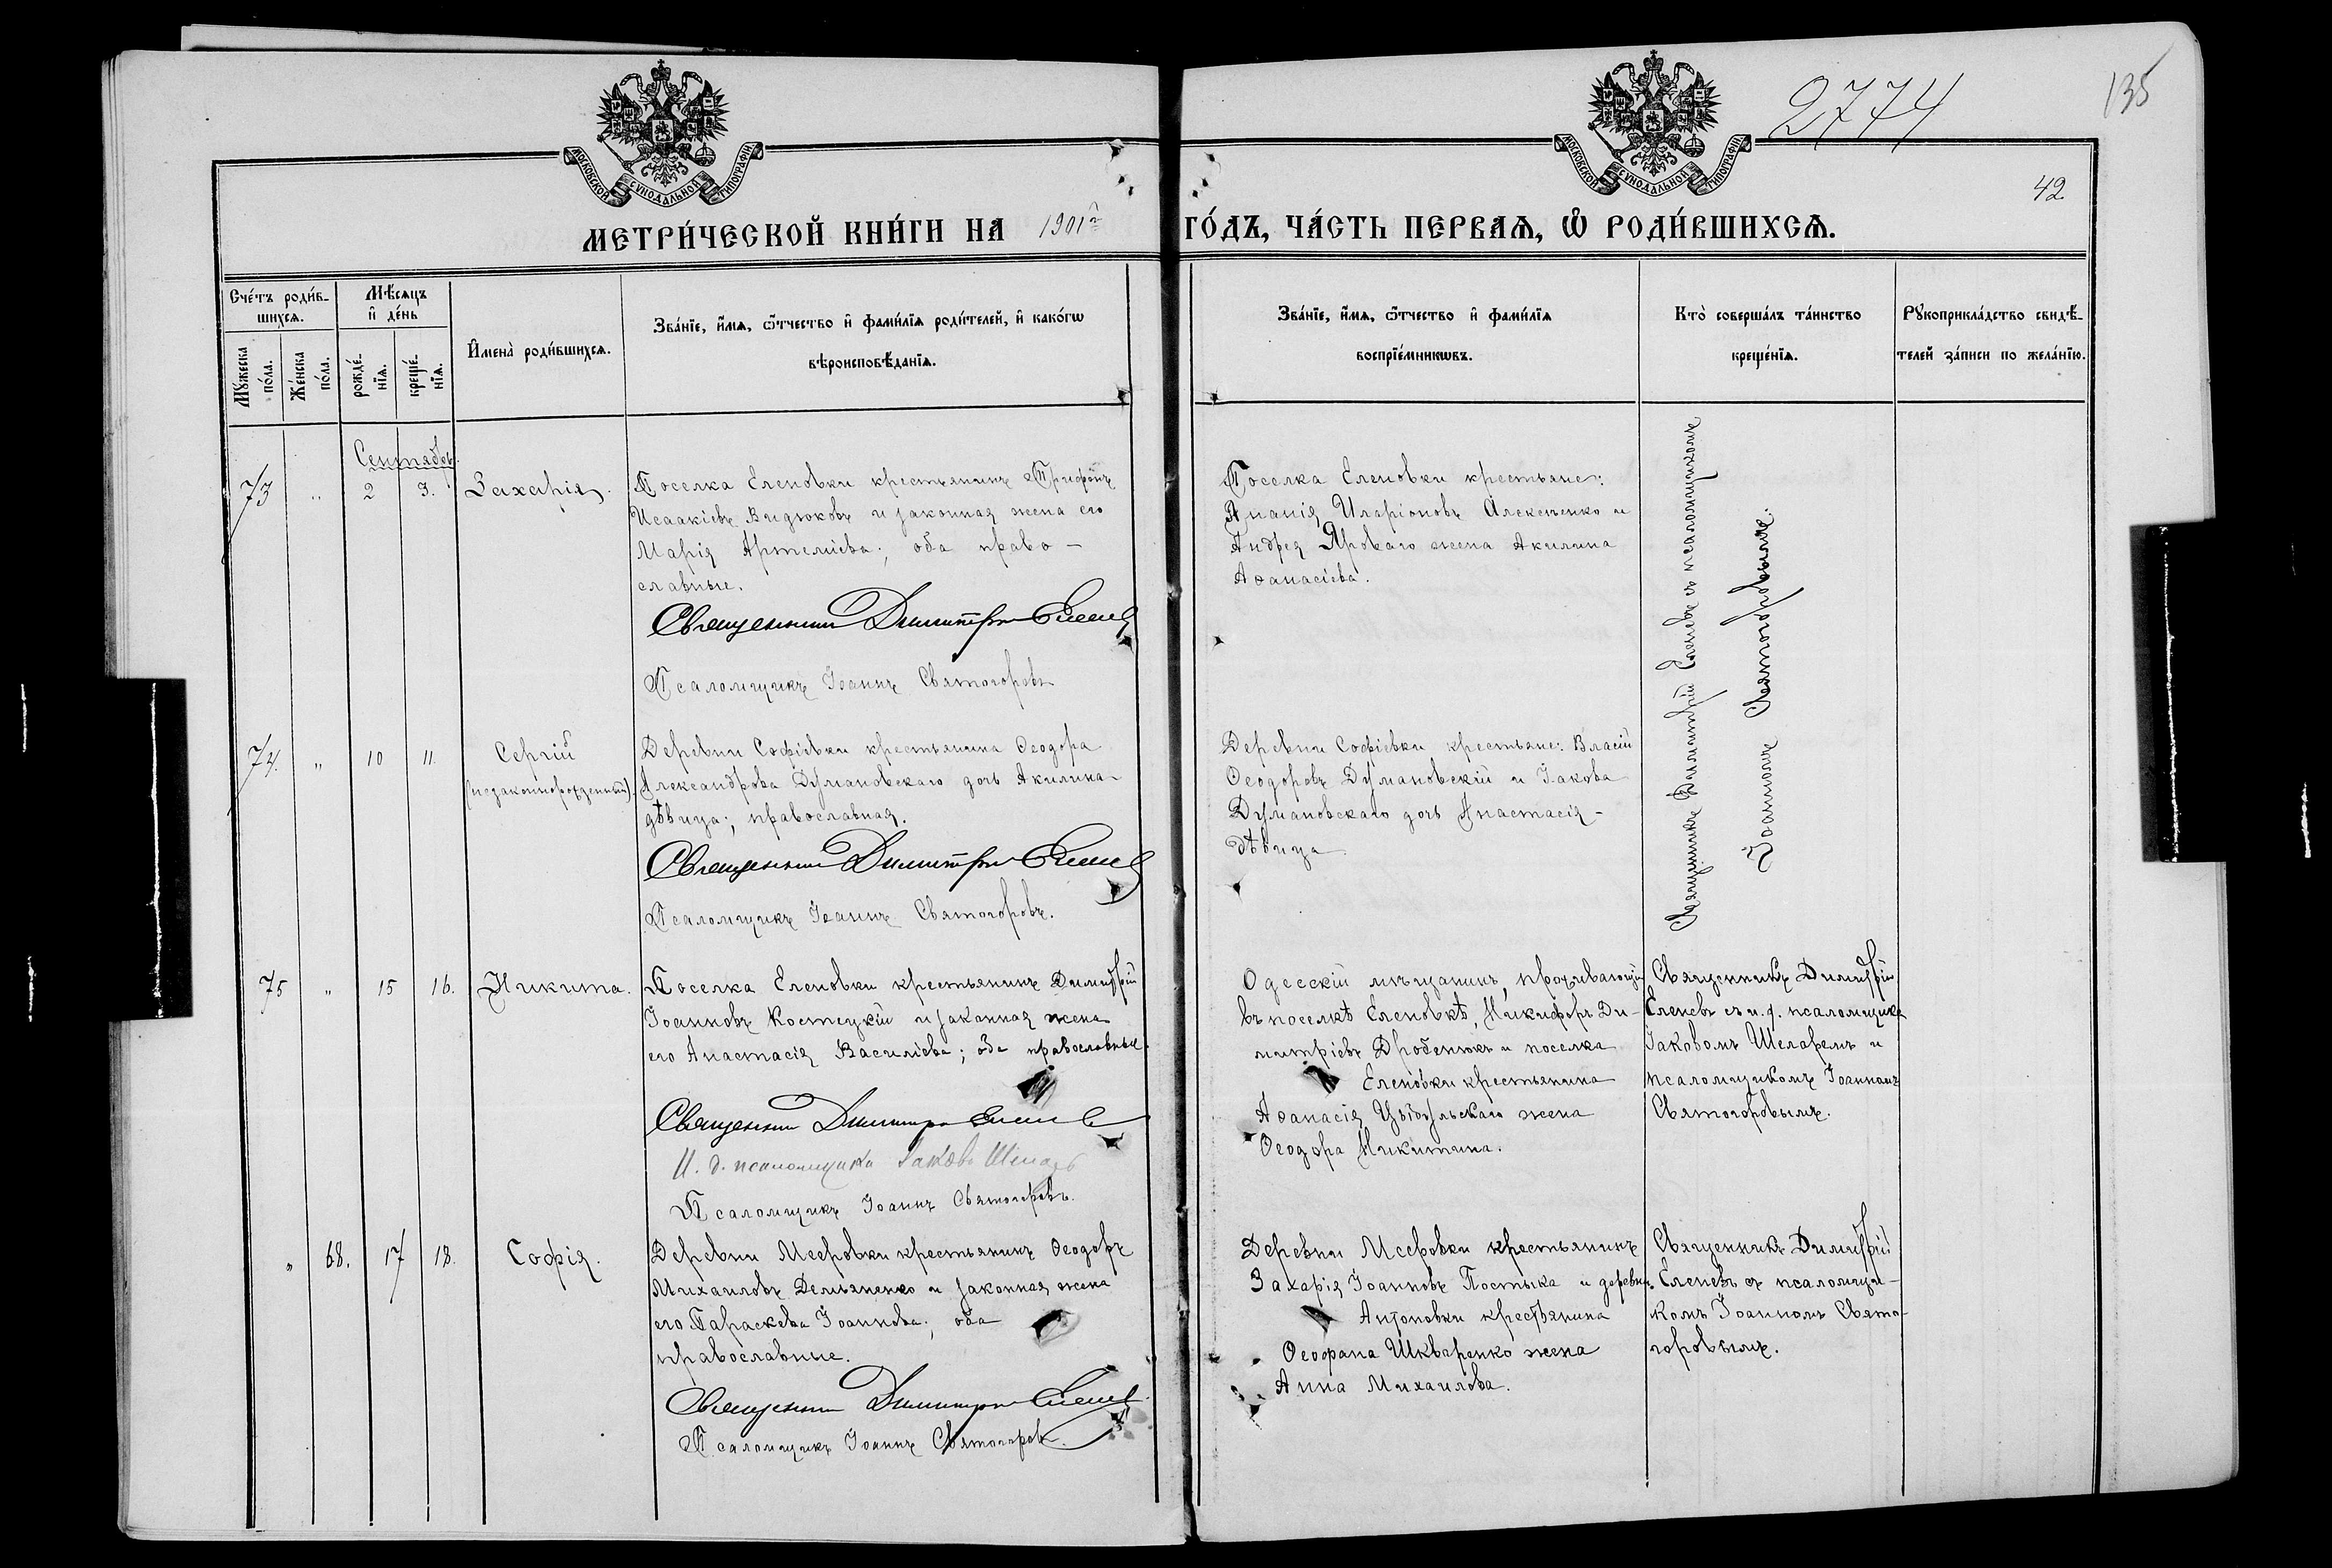 2774
135
МОСКОВСКОЙ СѴНОДАЛЬНОЙ ТИПОГРАФІИ
МОСКОВСКОЙ СѴНОДАЛЬНОЙ ТИПОГРАФІИ
42
МЕТРИ́ЧЕСКОЙ КНИ́ГИ НА 1901 ГО́ДЪ, ЧА́СТЬ ПЕРВАѦ, Ѡ҆ РОДИ́ВШИХСѦ.
Сче́тъ роди́в-
шихсѧ.
Мꙋ́жеска
по́ла.
Же́нска
по́ла.
Мѣ́сѧцъ
и҆ де́нь
рожде́-
нїѧ.
креще́-
нїѧ.
И҆мена̀ роди́вшихсѧ.
Зва́нїе, и҆́мѧ, ѻ҆́тчество и҆ фами́лїѧ роди́телей, и҆ како́гѡ
вѣроисповѣ́данїѧ.
Зва́нїе, и҆́мѧ, ѻ҆́тчество и҆ фами́лїѧ
воспрїе́мникѡвъ.
Кто̀ соверша́лъ та́инство
креще́нїѧ.
Рꙋкоприкла́дство свидѣ́-
телей за́писи по жела́нїю.
Сентябрь.
73 " 2 3. Захарія.
Поселка Еленовки крестьянинъ Трифонъ
Исаакіевъ Видюковъ и законная жена его
Марія Артеміева; оба право-
славные.
Священникъ Димитрій Еленевъ
Псаломщикъ Іоаннъ Святогоровъ
Поселка Еленовки крестьяне:
Ананія Иларіоновъ Алексеенко и
Андрея Яроваго жена Акилина
Аѳанасіева.
Священникъ Димитрій Еленевъ съ псаломщикомъ
Іоанномъ Святогоровымъ.
74. " 10 11. Сергій
(незаконнорожденный).
Деревни Софіевки крестьянина Ѳеодора
Александрова Думановскаго дочь Акилина
дѣвица; православная.
Священникъ Димитрій Еленевъ
Псаломщикъ Іоаннъ Святогоровъ.
Деревни Софіевки крестьяне: Власій
Ѳеодоровъ Думановскій и Іакова
Думановскаго дочь Анастасія-
дѣвица
75 " 15 16. Никита.
Поселка Еленовки крестьянинъ Димитрій
Іоанновъ Костецкій и законная жена
его Анастасія Василіева; оба православные.
Священникъ Димитрій Еленевъ
И. д. псаломщика Іаковъ Шеларь
Псаломщикъ Іоаннъ Святогоровъ.
Одесскій мѣщанинъ, проживающій
въ поселкѣ Еленовкѣ, Никифоръ Ди-
митріевъ Дробенюкъ и поселка
Еленовки крестьянина
Аѳанасія Цыбульскаго жена
Ѳеодора Никитина.
Священникъ Димитрій
Еленевъ съ и. д. псаломщика
Іаковомъ Шеларемъ и
псаломщикомъ Іоанномъ
Святогоровымъ.
" 68. 17 18. Софія.
Деревни Мееровки крестьянинъ Ѳеодоръ
Михаиловъ Демьяненко и законная жена
его Параскева Іоаннова; оба
православные.
Священникъ Димитрій Еленевъ
Псаломщикъ Іоаннъ Святогоровъ.
Деревни Мееровки крестьянинъ
Захарія Іоанновъ Постыка и деревни
Антоновки крестьянина
Ѳеофана Шкваренко жена
Анна Михаилова.
Священникъ Димитрій
Еленевъ съ псаломщи-
комъ Іоанномъ Свято-
горовымъ.